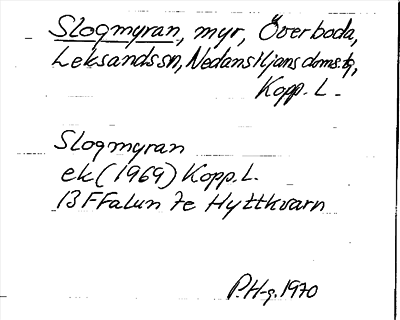 Slogmyran, myr, Överboda,
Leksands sn, Nedansiljans doms.g,
Kopp. L.
Slogmyran
ek (1969) Kopp. L.
13 F Falun 7e Hyttkvarn
P.H-g. 1970